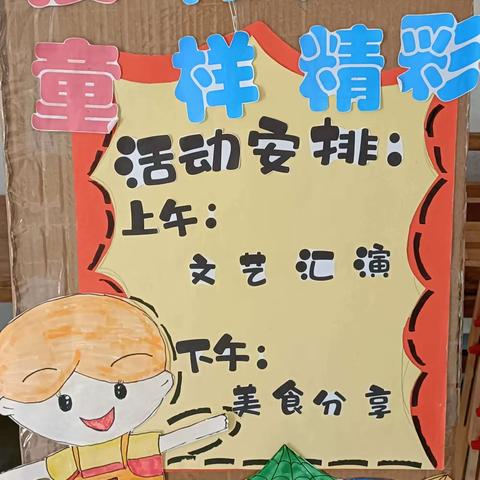 童样精彩
活动安排：
上午：
文艺汇演
下午：
美食分享